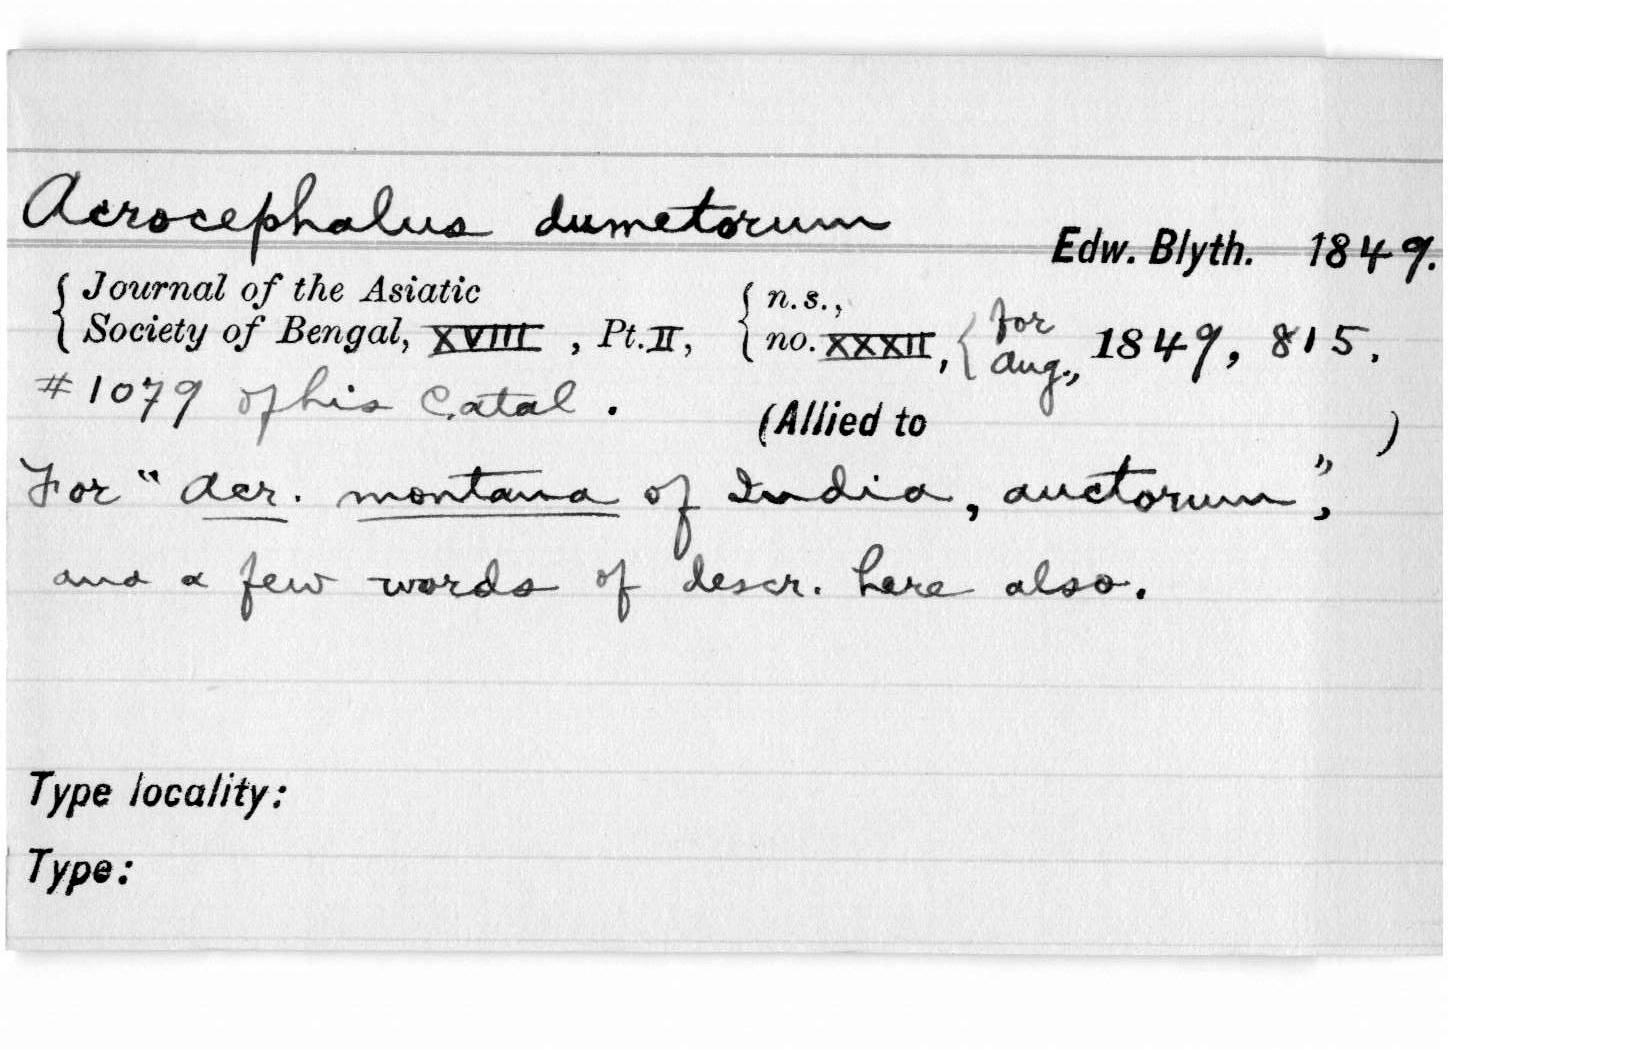 Acrocephalus dumetorum
Edw. Blyth. 1849.
{ Journal of the Asiatic { n.s., { for
Society of Bengal, XVIII, Pt. II, no. XXXII, Aug., 1849, 815.
#1079 of his Catal. (Allied to )
For "Acr. montana of India, auctorum",
and a few words of descr. here also.
Type locality:
Type: